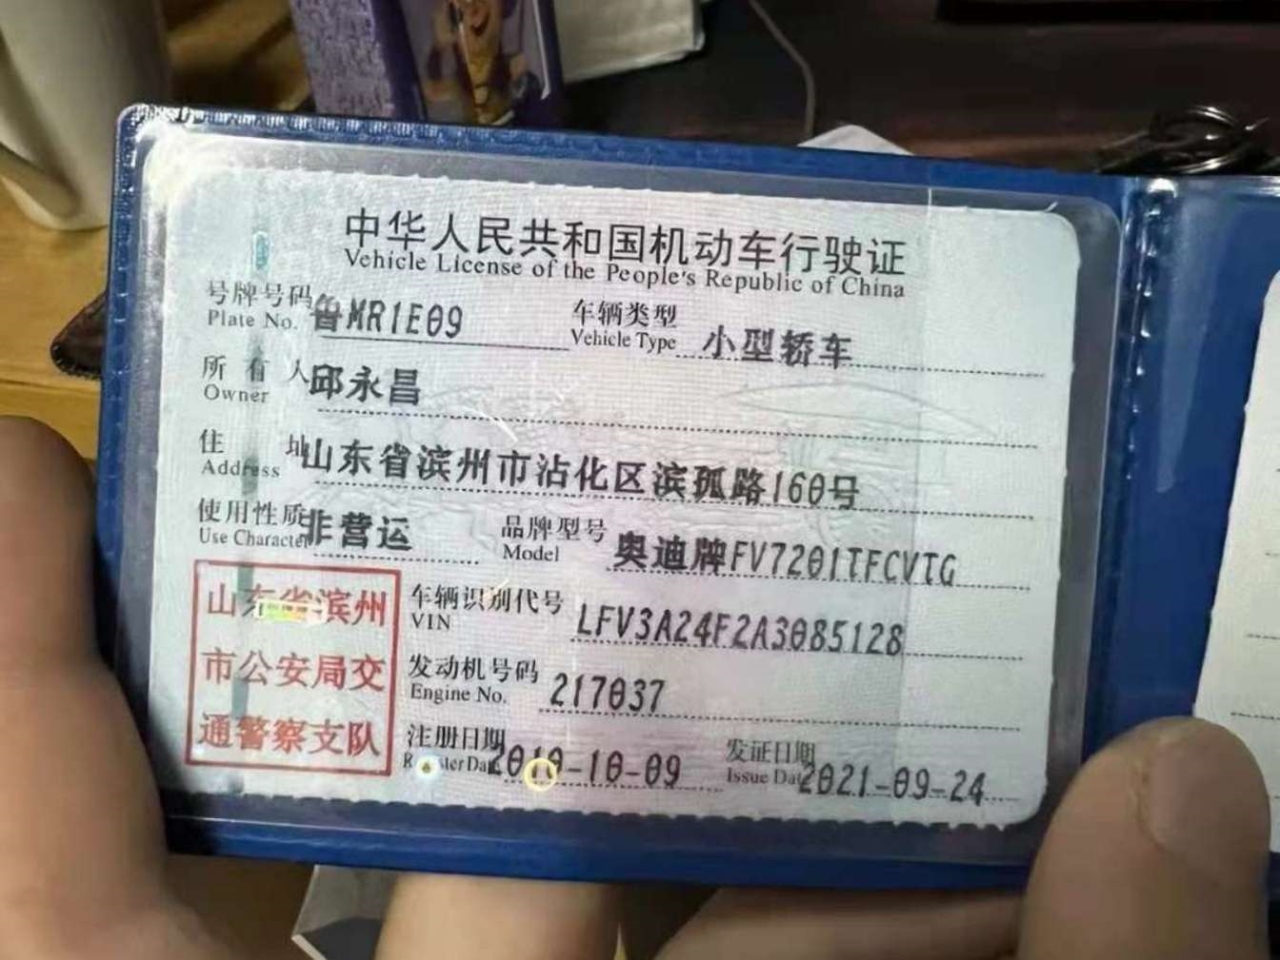 中华人民共和国机动车行驶证
Vehicle License of the People's Republic of China
号牌号码 鲁MR1E09 车辆类型 小型轿车
Plate No. Vehicle Type
所有人 邱永昌
Owner
住址 山东省滨州市沾化区滨孤路160号
Address
使用性质 非营运 品牌型号 奥迪牌FV7201TFCVTG
Use Character Model
山东省滨州
市公安局交
通警察支队
车辆识别代号 LFV3A24F2A3085128
VIN
发动机号码 217037
Engine No.
注册日期 2010-10-09 发证日期 2021-09-24
Register Date Issue Date